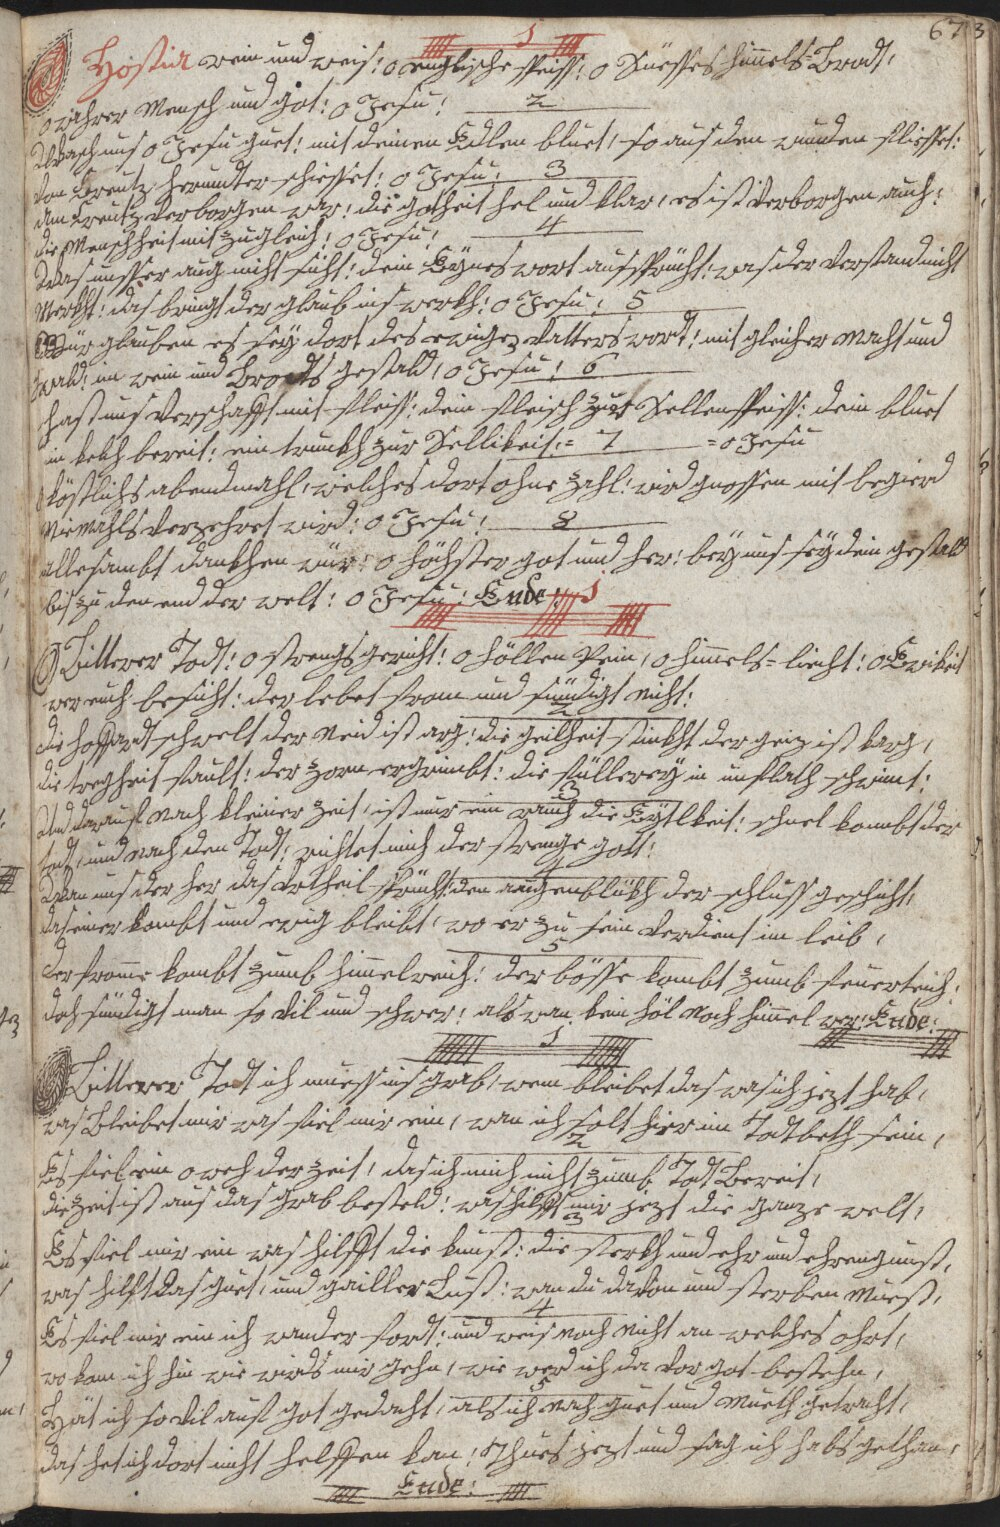 673
1
O Hostia rein und weis: o englische speiss: o Süesses himels=Brodt:
o wahrer Mensch und got: o Jesu: 2
Wasch uns o Jesu guet: mit deinen Edlen bluet, so aus den wunden fliesset:
von Creutz herundter schiesset: o Jesu: 3
Am Creutz verborgen war: die gotheit hel und klar, es ist verborgen auch:
die Menschheit mit zugleich: o Jesu: 4
Was unsser aug nicht sicht: dein Eÿnes wort aussprücht: was der verstand nicht
Merkht: das bringt der glaub ins werkh: o Jesu: 5
Wür glauben es seÿ dort des ewigen Vatters wort: mit gleicher macht und
gwald: im wein und Brodts gestald, o Jesu: 6
hast uns verschafft mit fleiss: dein fleisch zur Sellenspeiss: dein bluet
in kelch bereit: ein trunckh zur Sellikeit: 7 = o Jesu
O köstlichs abendmahl, welches dort ohne zahl: wird gnossen mit begierd
Niemahls verzehret wird: o Jesu: 8
allesambt dankhen wür: o höchster got und her: beÿ uns seÿ dein gestald
bis zu den end der welt: o Jesu: Ende: 1
O Bitterer Todt: o strengs gericht: o höllen Pein, o himels=liecht: o Ewikeit
wer euch besicht: der lebet from und sündigt nicht:
2
die hoffardt schwelt der Neid ist arg: die geilheit stinkht der geiz ist karg,
die tregheit fault: der zorn ergrimbt: die füllereÿ in unflath schwimt:
3
Und darauf nach kleiner zeit, ist nur ein rauch die Eÿtlkeit: schnel kombt der
todt, und nach den Todt: richtet mich der strenge gott:
4
Wan uns der her das Urtheil sprücht: den augenblükh der schluss geschicht,
das einer kombt und ewig bleibt, wo er zu sein verdient im leib,
5
der fromme kombt zumb himmelreich: der bösse kombt zumb feuerteich:
doch sündigt man so vil und schwer: als wan kein höl noch himel wer: Ende:
1
O Bitterer Todt ich muess ins grab, wem bleibet das was ich jezt hab,
was Bleibet mir was fiel mir ein, wan ich solt hier im Todtbeth sein,
2
Es fiel ein o weh der zeit, das ich mich nicht zumb Todt Bereit,
die zeit ist aus das grab besteld: was hilfft mir jezt die ganze welt,
3
Es fiel mir ein was hilfft die kunst: die sterkh und ehr und ehrengunst,
was hilft das guet, und gailler Lust: wan du davon und sterben muest,
4
Es fiel mir ein ich wander fordt: und weis noch nicht an welches ohrt,
wo kom ich hin wie wirds mir gehn, wie werd ich da vor got bestehn,
5
Hät ich so vil auf got gedacht, als ich nach guet und Mueth getracht,
das het ich dort nicht helffen kan: Thues jezt und sag ich habs gethan,
Ende: